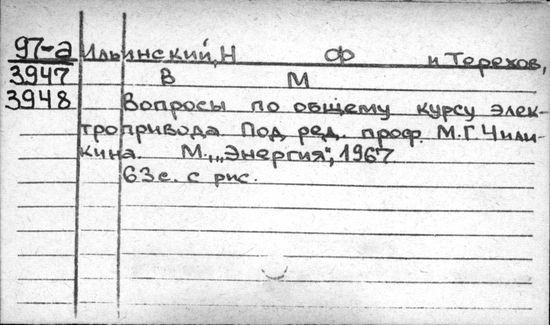 97-а Ильинский, Н Ф и Терехов,
3947 В М
3948 Вопросы по общему курсу элек-
тропривода Под ред. проф. М.Г. Чили-
кина. М., „Энергия", 1967
63 с. с рис.